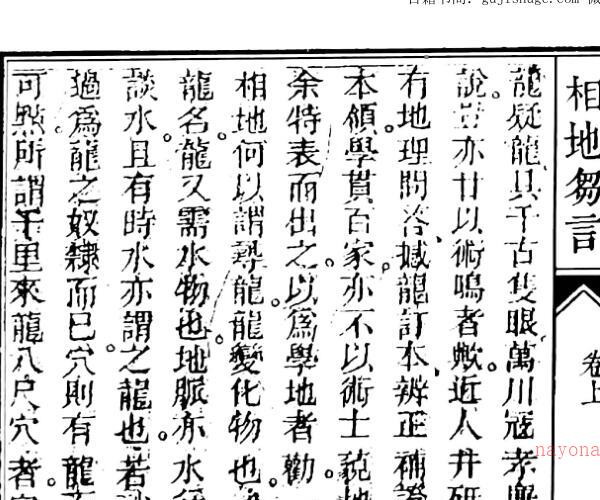 古籍书阁: gujishuge.com 微
相地芻言
卷上
龍疑龍具千古隻眼萬川冠孝廉
說豈亦甘以術鳴者歟。近人井研
有地理問答、撼龍訂本辨正補證
本傾。學貫百家。亦不以術士
余特表而出之。以爲學地者勸。
相地何以謂尋龍。龍變化物也。
龍名。龍又需水物也。地脈亦水
談水且有時水亦謂之龍也。若
過爲龍之奴隸而已。穴則有龍
可點。所謂千里來龍八尺穴者
nayona